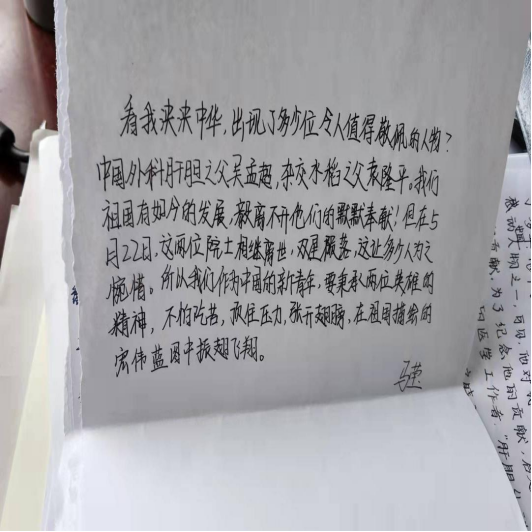 看我泱泱中华，出现了多少位令人值得敬佩的人物？
中国外科肝胆之父吴孟超，杂交水稻之父袁隆平。我们
祖国有如今的发展，都离不开他们的默默奉献！但在5
月22日，这两位院士相继离世，双星陨落，这让多少人为之
惋惜。所以我们作为中国的新青年，要秉承两位英雄的
精神，不怕吃苦，承住压力，张开翅膀，在祖国描绘的
宏伟蓝图中振翅飞翔。
献，为了纪念他的贡献，
的医学工作者，"肝胆